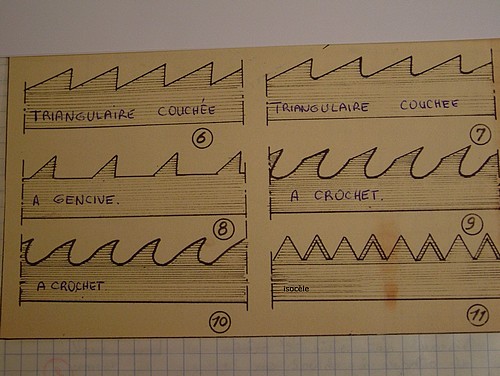 TRIANGULAIRE COUCHÉE
6
TRIANGULAIRE COUCHEE
7
A GENCIVE.
8
A CROCHET.
9
A CROCHET
10
isocèle
11